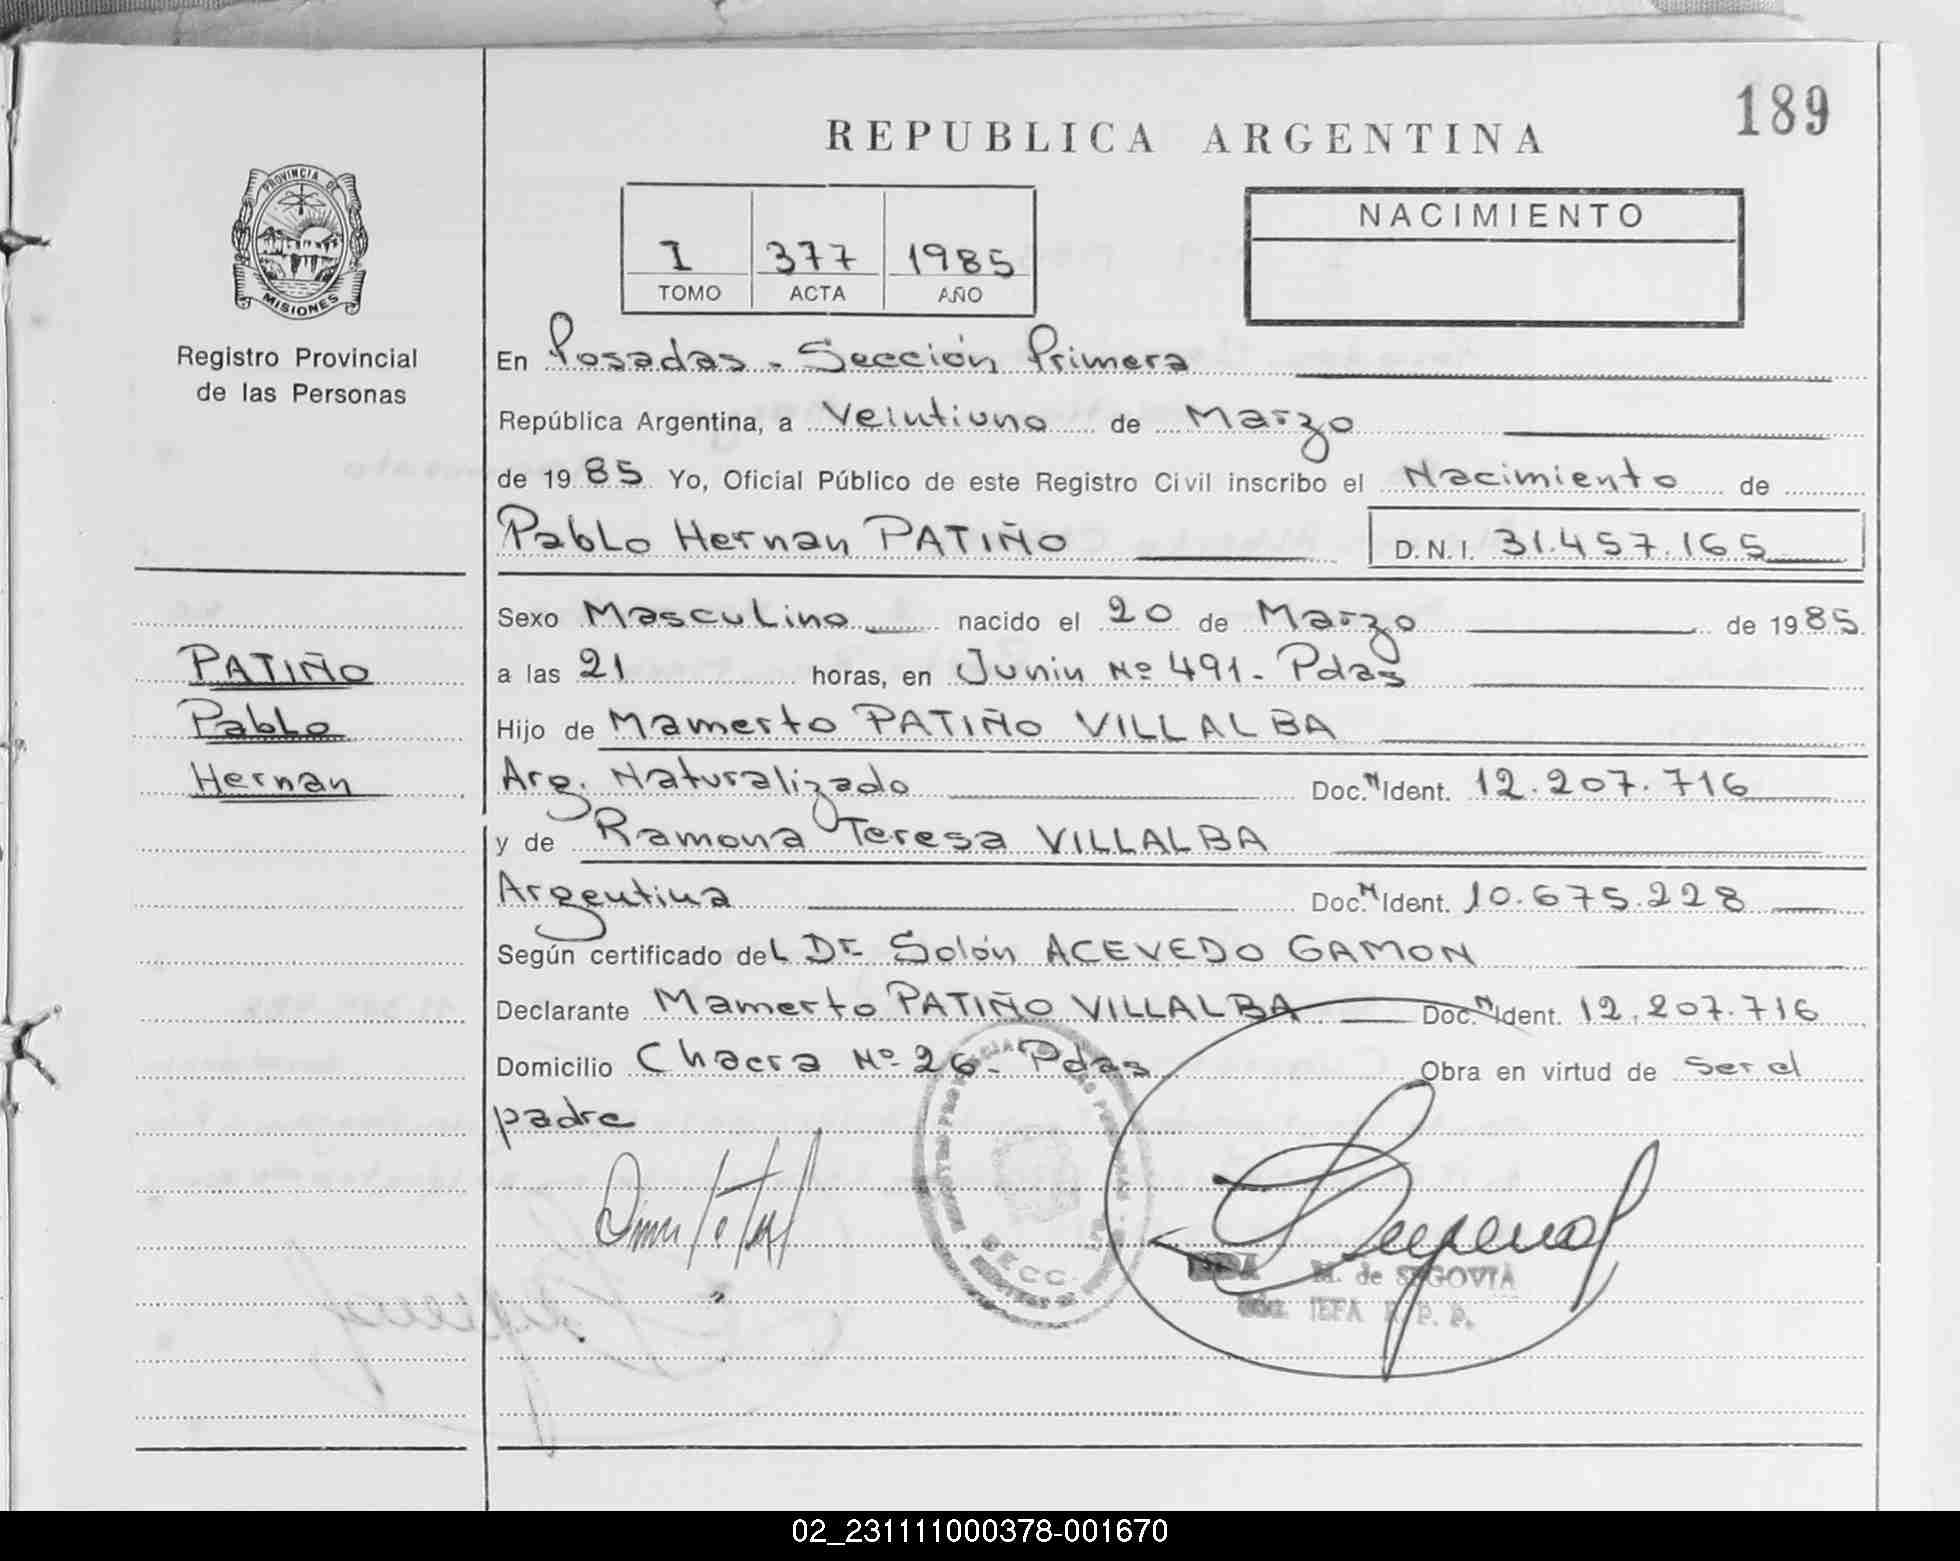 189
REPUBLICA ARGENTINA
PROVINCIA DE
MISIONES
Registro Provincial
de las Personas
I 377 1985
TOMO ACTA AÑO
NACIMIENTO
En Posadas - Sección Primera
República Argentina, a Veintiuno de Marzo
de 1985 Yo, Oficial Público de este Registro Civil inscribo el Nacimiento de
Pablo Hernan PATIÑO D.N.I. 31.457.165
Sexo Masculino nacido el 20 de Marzo de 1985
PATIÑO
Pablo
Hernan
a las 21 horas, en Junin Nº 491 - Pdas
Hijo de Mamerto PATIÑO VILLALBA
Arg. Naturalizado Doc. N Ident. 12.207.716
y de Ramona Teresa VILLALBA
Argentina Doc. N Ident. 10.675.228
Según certificado del Dr Solón ACEVEDO GAMON
Declarante Mamerto PATIÑO VILLALBA Doc. N Ident. 12.207.716
Domicilio Chacra Nº 26 - Pdas Obra en virtud de ser el
padre
SECC.
M. de SEGOVIA
JEFA R. P. P.
02_231111000378-001670